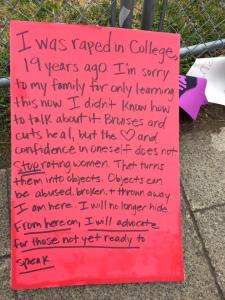 I was raped in College,
19 years ago. I'm sorry
to my family for only learning
this now. I didn't know how
to talk about it. Bruises and
cuts heal, but the ♡ and
confidence in oneself does not.
Stop rating women. That turns
them into objects. Objects can
be abused, broken, + thrown away.
I am here. I will no longer hide.
From here on, I will advocate
for those not yet ready to
speak